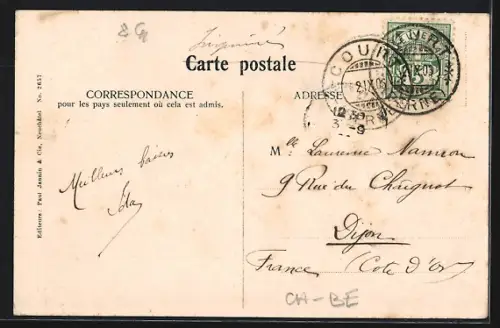 2G
Carte postale
CORRESPONDANCE
pour les pays seulement où cela est admis.
ADRESSE
Editeurs: Paul Jannin & Cie, Neuchâtel No. 2657
Meilleurs baisers
Ida
Mlle Laurence
9 Rue du
Dijon
France (Cote d'Or)
COURT
21.IX.09
BERNE
CH-BE